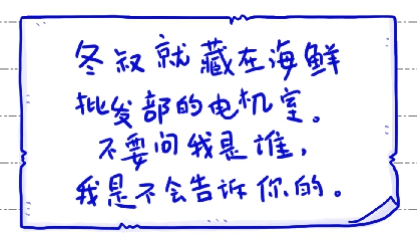 冬叔就藏在海鲜
批发部的电机室。
不要问我是谁，
我是不会告诉你的。